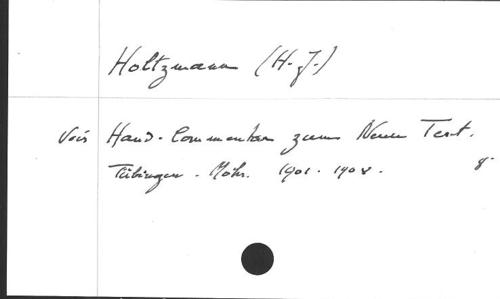 Holtzmann (H.J.)
Voir Hand-Commentar zum Neuen Test.
Tübingen. Mohr. 1901-1908.